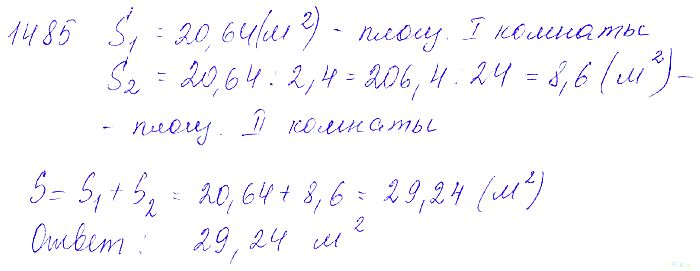 1485 S₁ = 20,64(м²) - площ. I комнаты
S₂ = 20,64 : 2,4 = 206,4 : 24 = 8,6 (м²) -
- площ. II комнаты
S = S₁ + S₂ = 20,64 + 8,6 = 29,24 (м²)
Ответ: 29,24 м²